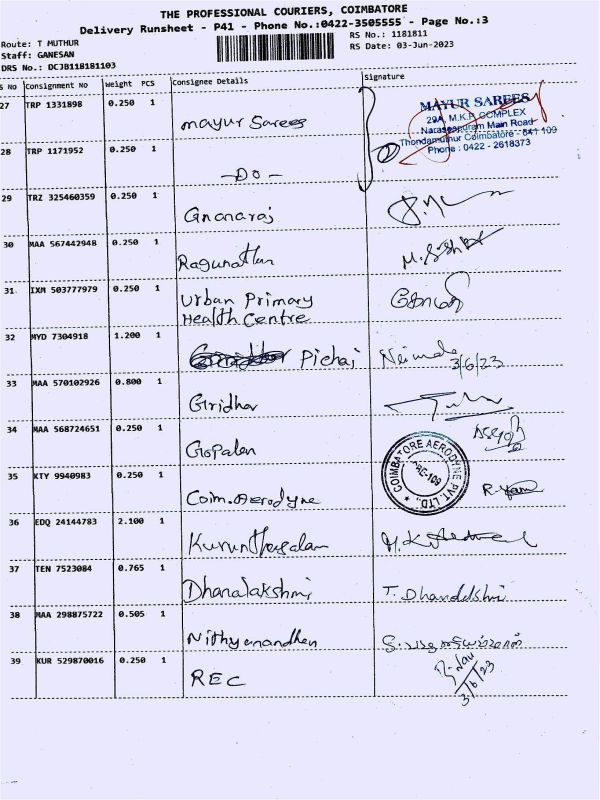 THE PROFESSIONAL COURIERS, COIMBATORE
Delivery Runsheet - P41 - Phone No.:0422-3505555 - Page No.:3
Route: T MUTHUR
RS No.: 1181811
Staff: GANESAN
RS Date: 03-Jun-2023
DRS No.: DCJB118181103
S No Consignment No Weight PCS Consignee Details Signature
27 TRP 1331898 0.250 1 Mayur Sarees
MAYUR SAREES
29A, M.K.P. COMPLEX
Naraseepuram Main Road
Thondamuthur Coimbatore - 641 109
Phone : 0422 - 2618373
28 TRP 1171952 0.250 1 -DO- 2
29 TRZ 325460359 0.250 1 Gnanaraj
30 MAA 567442948 0.250 1 Ragunathan
31 IXM 503777979 0.250 1 Urban Primary
Health Centre
32 MYD 7304918 1.200 1 Pichai
3/6/23
33 MAA 570102926 0.800 1 Giridhar
34 MAA 568724651 0.250 1 Gopalan
35 KTY 9940983 0.250 1 Coim.Aerodyne
COIMBATORE AERODYNE PVT. LTD.,
36 EDQ 24144783 2.100 1
37 TEN 7523084 0.765 1 Dhanalakshmi
38 MAA 298875722 0.505 1 Nithyanandhan
39 KUR 529870016 0.250 1 REC
3/6/23